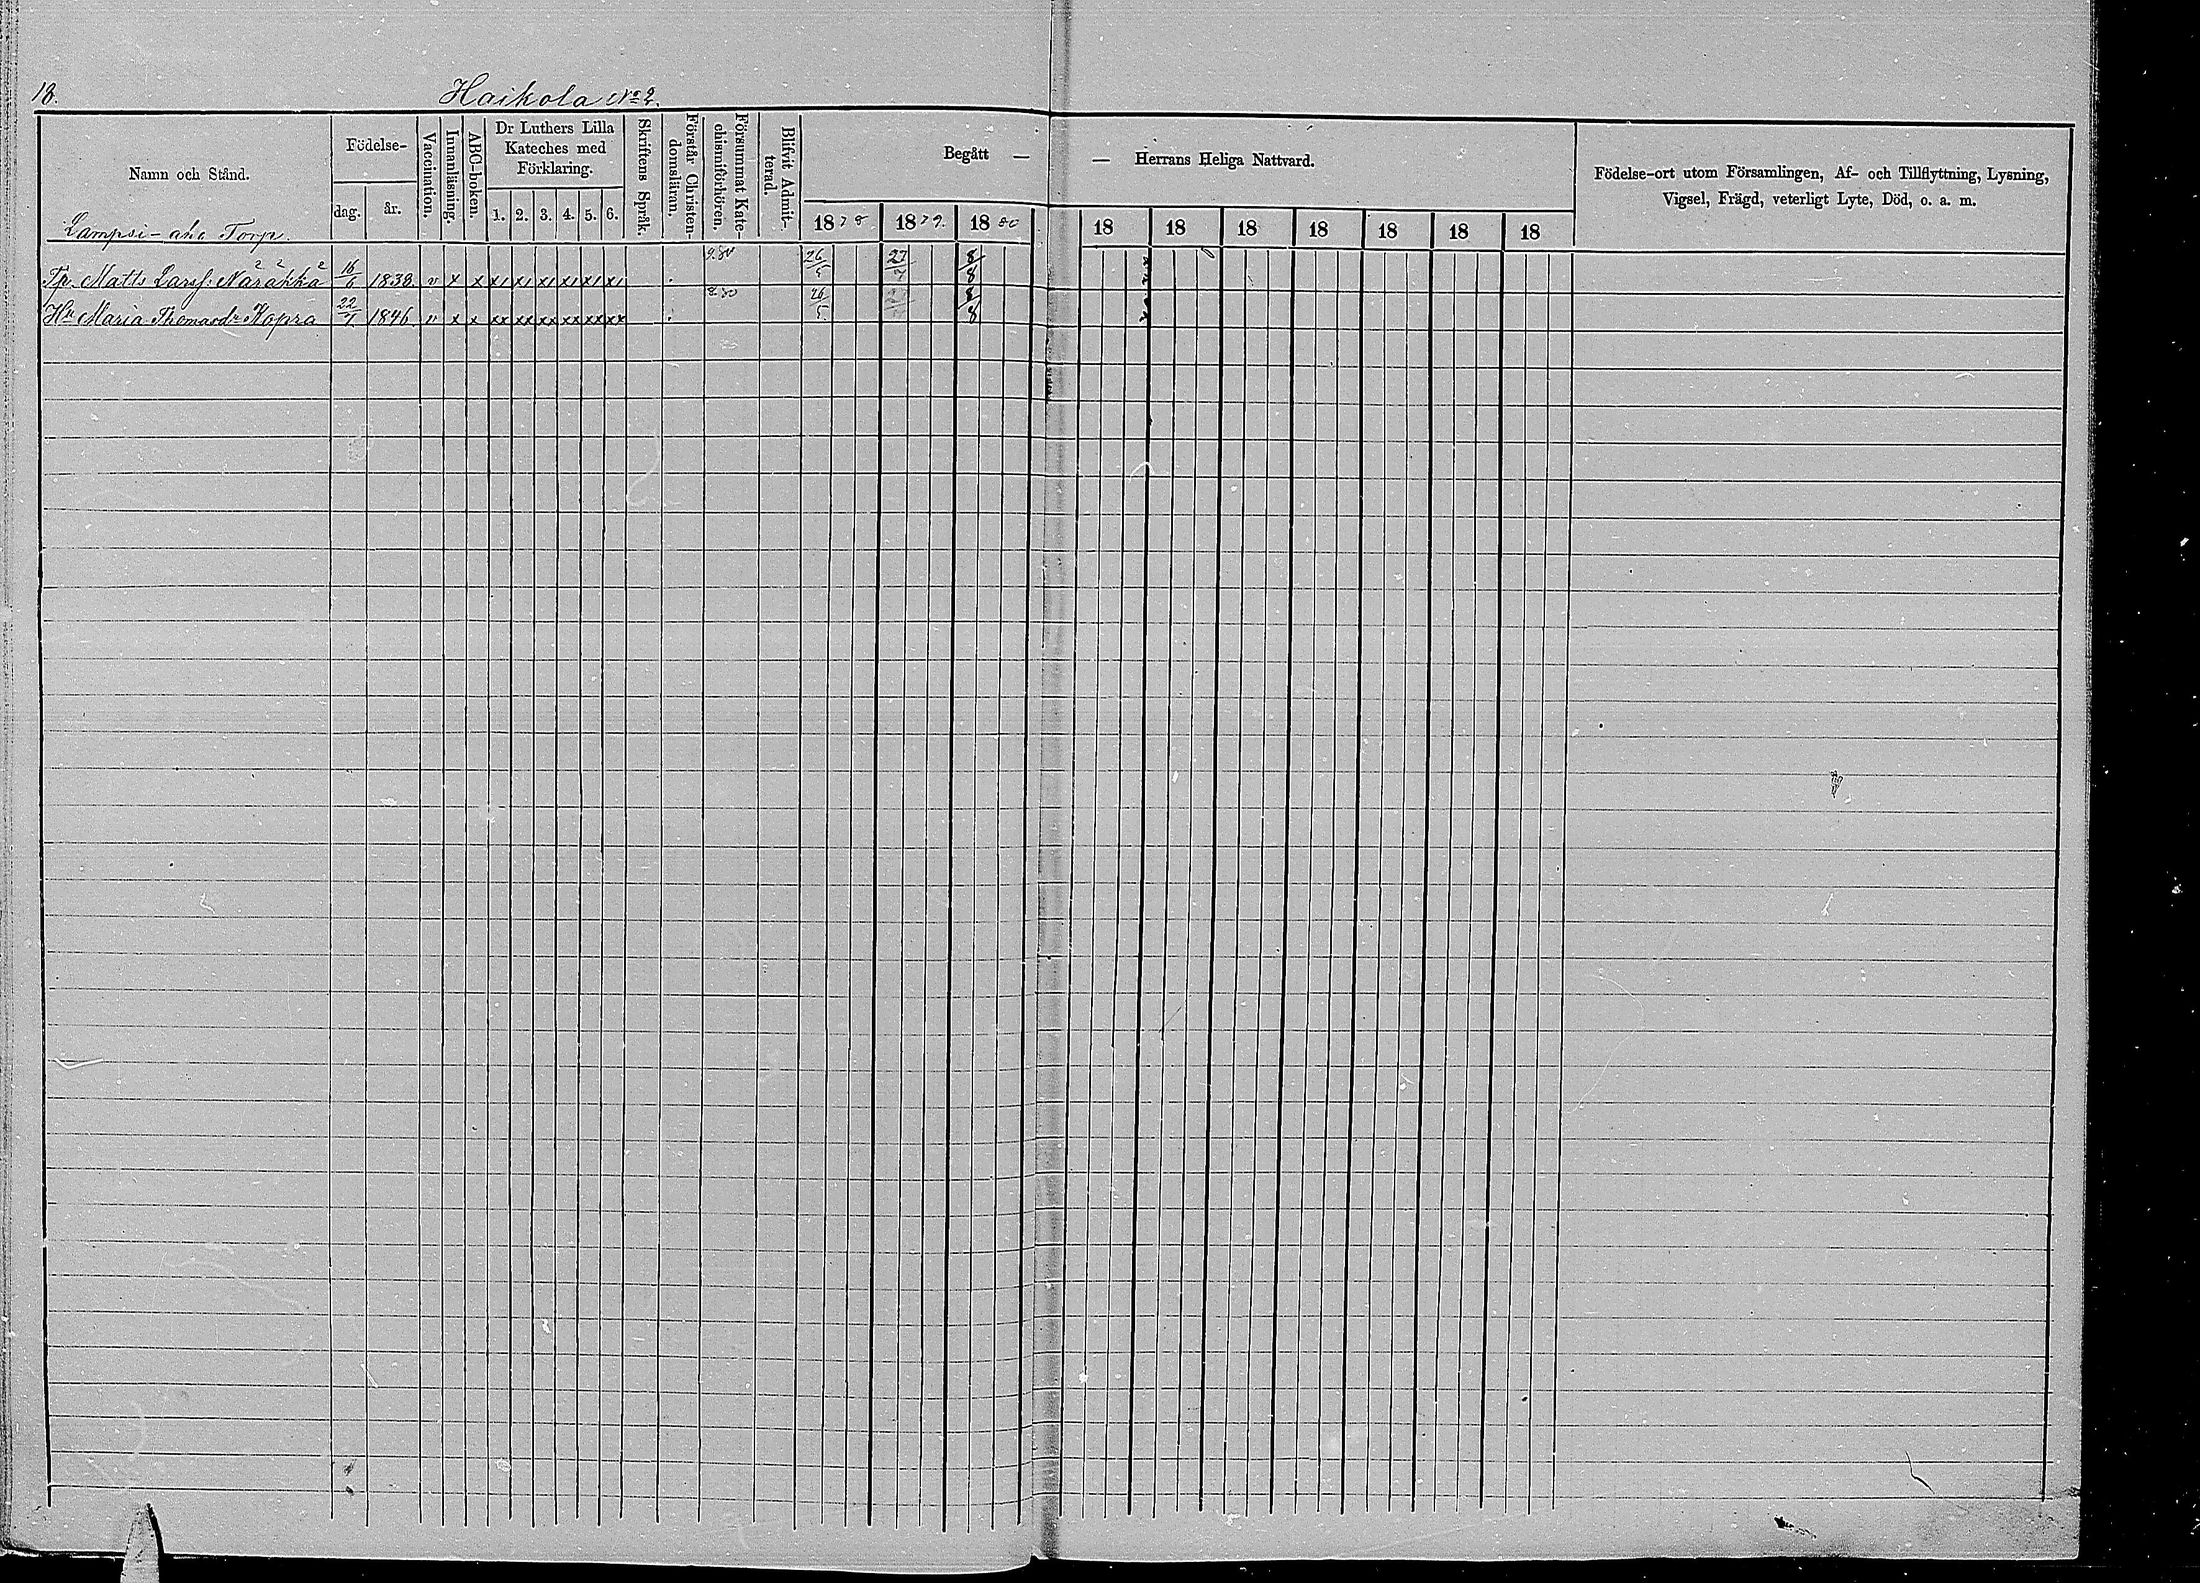 18.
Haikola No 2.
Namn och Stånd.
Födelse-
dag. år.
Vaccination.
Innanläsning.
ABC-boken.
Dr Luthers Lilla
Kateches med
Förklaring.
1. 2. 3. 4. 5. 6.
Skriftens Språk.
Förstår Christen-
domsläran.
Försummat Kate-
chismiförhören.
Blifvit Admit-
terad.
Begått — — Herrans Heliga Nattvard.
1878 1879. 1880 18 18 18 18 18 18 18
Födelse-ort utom Församlingen, Af- och Tillflyttning, Lysning,
Vigsel, Frägd, veterligt Lyte, Död, o. a. m.
Lampsi-aho Torp.
Tp. Matts Larsf. Näräkkä 16/6 1838. v x x x1 x1 x1 x1 x1 x1 26/5 27/7 8/8
Hu Maria Thomasdr Kapra 22/7 1846. v x x xx xx xx xx xx xx 26/5 8/8